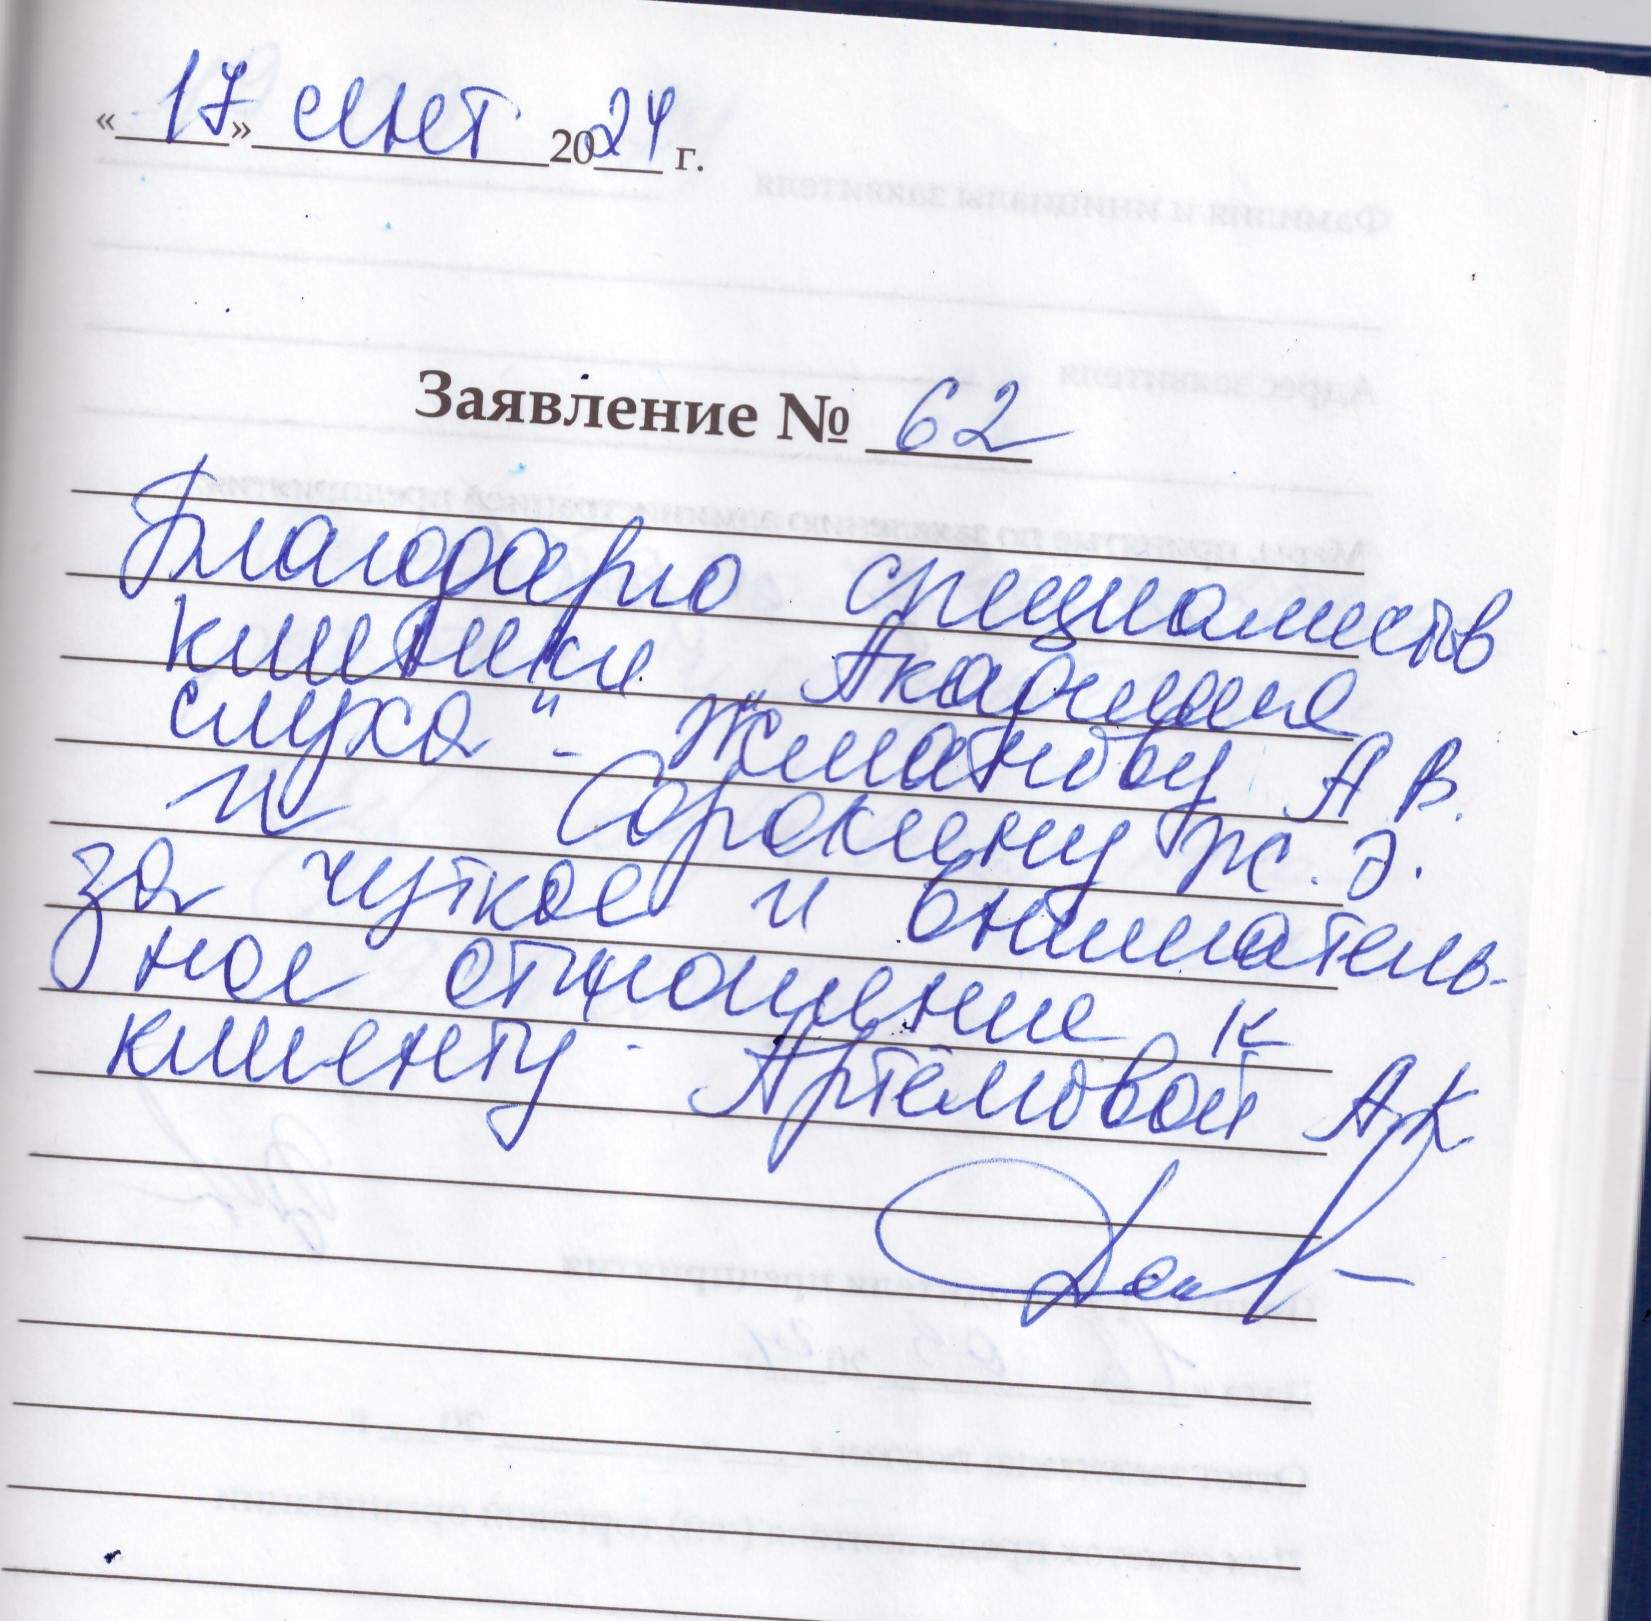 «17» сент 2024 г.
Заявление № 62
Благодарю специалистов
клиники "Академия
слуха" - Жматнову А В.
и Сорокину Ж. Э.
за чуткое и вниматель-
ное отношение к
клиенту Артёмовой А.К